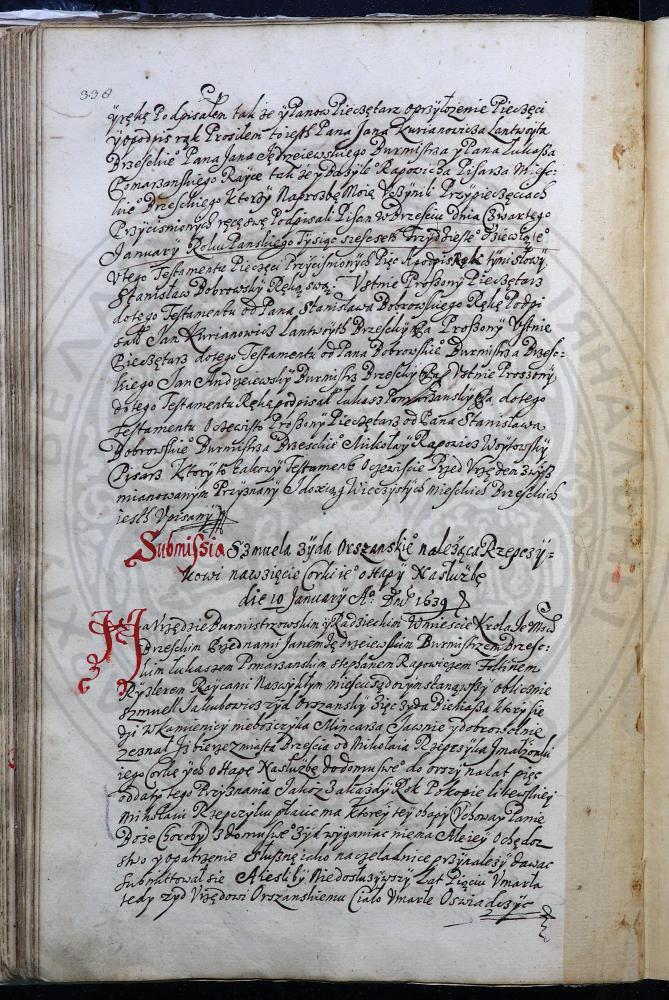 338
y ręką Podpisałem także y Panow Pieczętarz o przyłozenie Pieczęci
y o podpis rąk Prosiłem to iest Pana Jana Kurianowicza Lantwoyta
Brzeskie° Pana Jana Jędrzeiewskiego Burmistrza y Pana Łukasza
Pomarzanskiego Raycę także y Rapowicza Pisarza Mieis-
kie° Brzeskiego Ktorzy Na prozbę Moię Vczynili Przy pieczęciach
Przycisnionych ręce swe Podpisali Pisan w Brzesciu Dnia Czwartego
January Roku Panskiego Tysiąc szescset Trzydzieste° dziewiąte°
V tego Testamentu Pieczęci Przycisnionych Pięc A podpis rąk tymi słowy
Stanisław Dobrowski Ręką swą. Vstnie Proszony Pieczętarz
do tego Testamentu od Pana Stanisława Dobrowskiego Rękę Podpi
sał Jan Kurianowicz Lantwoyt Brzeski Proszony Vstnie
Pieczętarz do tego Testamentu od Pana Dobrowskie° Burmistrza Brzes-
kiego Jan Andrzeiewski Burmistrz Brzeski Vstnie Proszony
do tego Testamentu Rękę podpisał Łukasz Pomorzanski do tego
Testamentu Oczewisto Proszony Pieczętarz od Pana Stanisława
Dobrowskie° Burmistrza Brzeskie° Mikołay Rapowicz Woytowsky
Pisarz Ktoryto takowy Testament Oczewiscie Przed Vrzędem zwysz
mianowanym Przyznany I do xiąg Wieczystych Mieiskich Brzeskich
iest Vpisany
Submissia Szmuela zyda Orszanskie° naleząca Rzepczy-
kowi na wzięcie Corki ie° Hapy Na słuzbę
die 10 January A° Dni 1639
Na Vrzędzie Burmistrzowskim y Radzieckim W miescie Krola Je° Msci
Brzeskim Przed nami Janem Jędrzeiewskim Burmistrzem Brzes-
kim Łukaszem Pomarzanskim Stephanem Rapowiczem
Ryszlerem Raycami Na zwykłym mieiscu sądowym stanąwszy oblicznie
Szmueł Jakubowicz zyd Orszanski zięc zyda ktory sie
w kamienicy nieboszczyka Mincarza Jawnie y dobrowolnie
zeznał Jz bierze z miasta Brzescia od Mikołaia Rzepczyka y małzonki
iego Corkę ych Hapę Na słuzbę do domu swe° do Orszy na lat pięc
od daty tego Przyznania Jakosz za kazdy Rok Po kopie litewskiey
Mikołaiu Rzepczyku płacic ma ktorey tey Hapy Vchoway Panie
Boze Choroby z domu swe° zyd wyganiac nie ma Ale iey Ochędoz
stwo y opatrzenie Słusznę iako na czeladnice przynalezy dawac
Submittował sie A iesliby nie dosłuzywszy Lat Pięciu Vmarła
tedy zyd Vrzędowi Orszanskiemu Ciało Vmarłe Oswiadczyc